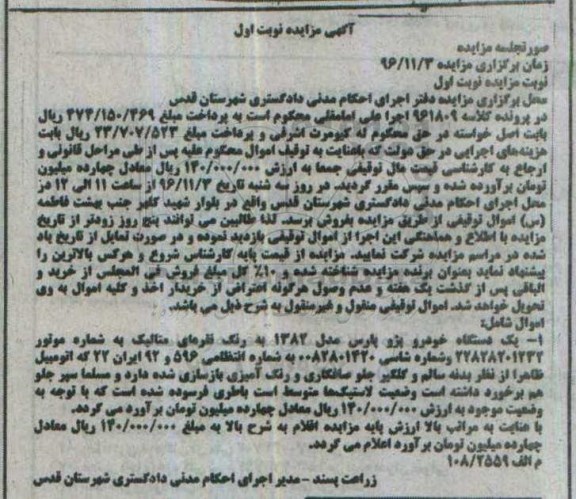 آگهی مزایده نوبت اول
صورتجلسه مزایده
زمان برگزاری مزایده ۹۶/۱۱/۳
نوبت مزایده نوبت اول
محل برگزاری مزایده دفتر اجرای احکام مدنی دادگستری شهرستان قدس
در پرونده کلاسه ۹۶۱۸۰۹ اجرا علی امامقلی محکوم است به پرداخت مبلغ ۳۷۴/۱۵۰/۳۶۹ ریال
بابت اصل خواسته در حق محکوم له کیومرث اشرفی و پرداخت مبلغ ۲۳/۷۰۷/۵۲۳ ریال بابت
هزینه‌های اجرایی در حق دولت که باعنایت به توقیف اموال محکوم علیه پس از طی مراحل قانونی و
ارجاع به کارشناسی قیمت مال توقیفی جمعا به ارزش ۱۴۰/۰۰۰/۰۰۰ ریال معادل چهارده میلیون
تومان برآورده شده و سپس مقرر گردید. در روز سه شنبه تاریخ ۹۶/۱۱/۳ از ساعت ۱۱ الی ۱۲ در
محل اجرای احکام مدنی دادگستری شهرستان قدس واقع در بلوار شهید کلهر جنب بهشت فاطمه
(س) اموال توقیفی از طریق مزایده بفروش برسد. لذا طالبین می توانند پنج روز زودتر از تاریخ
مزایده با اطلاع و هماهنگی این اجرا از اموال توقیفی بازدید نموده و در صورت تمایل از تاریخ یاد
شده در مراسم مزایده شرکت نمایید. مزایده از قیمت پایه کارشناس شروع و هرکس بالاترین را
پیشنهاد نماید بعنوان برنده مزایده شناخته شده و ۱۰٪ کل مبلغ فروش فی المجلس از خرید و
الباقی پس از گذشت یک هفته و عدم وصول هرگونه اعتراض از خریدار اخذ و کلیه اموال به وی
تحویل خواهد شد. اموال توقیفی منقول و غیرمنقول به شرح ذیل می باشد.
اموال شامل:
۱- یک دستگاه خودرو پژو پارس مدل ۱۳۸۲ به رنگ نقره‌ای متالیک به شماره موتور
۲۲۸۲۸۲۰۱۲۳۲ وشماره شاسی ۰۰۸۲۸۰۱۴۲۰ به شماره انتظامی ۵۹۶ و ۹۲ ایران ۲۲ که اتومبیل
ظاهرا از نظر بدنه سالم و گلگیر جلو صافکاری و رنگ آمیزی بازسازی شده دارد و مسلما سپر جلو
هم برخورد داشته است وضعیت لاستیک‌ها متوسط است باطری فرسوده شده است که با توجه به
وضعیت موجود به ارزش ۱۴۰/۰۰۰/۰۰۰ ریال معادل چهارده میلیون تومان برآورد می گردد.
با عنایت به مراتب بالا ارزش پایه مزایده اقلام به شرح بالا به مبلغ ۱۴۰/۰۰۰/۰۰۰ ریال معادل
چهارده میلیون تومان برآورد اعلام می گردد.
م الف ۱۰۸/۲۵۵۹
زراعت پسند - مدیر اجرای احکام مدنی دادگستری شهرستان قدس